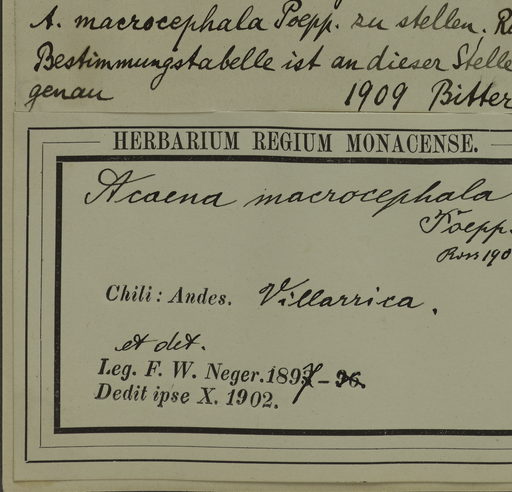 A. macrocephala Poepp. zu stellen.
Bestimmungstabelle ist an dieser Stelle
genau 1909 Bitter
HERBARIUM REGIUM MONACENSE.
Acaena macrocephala
Poepp.
Ross 190
Chili: Andes. Villarrica.
et det.
Leg. F. W. Neger. 1897-96.
Dedit ipse X. 1902.